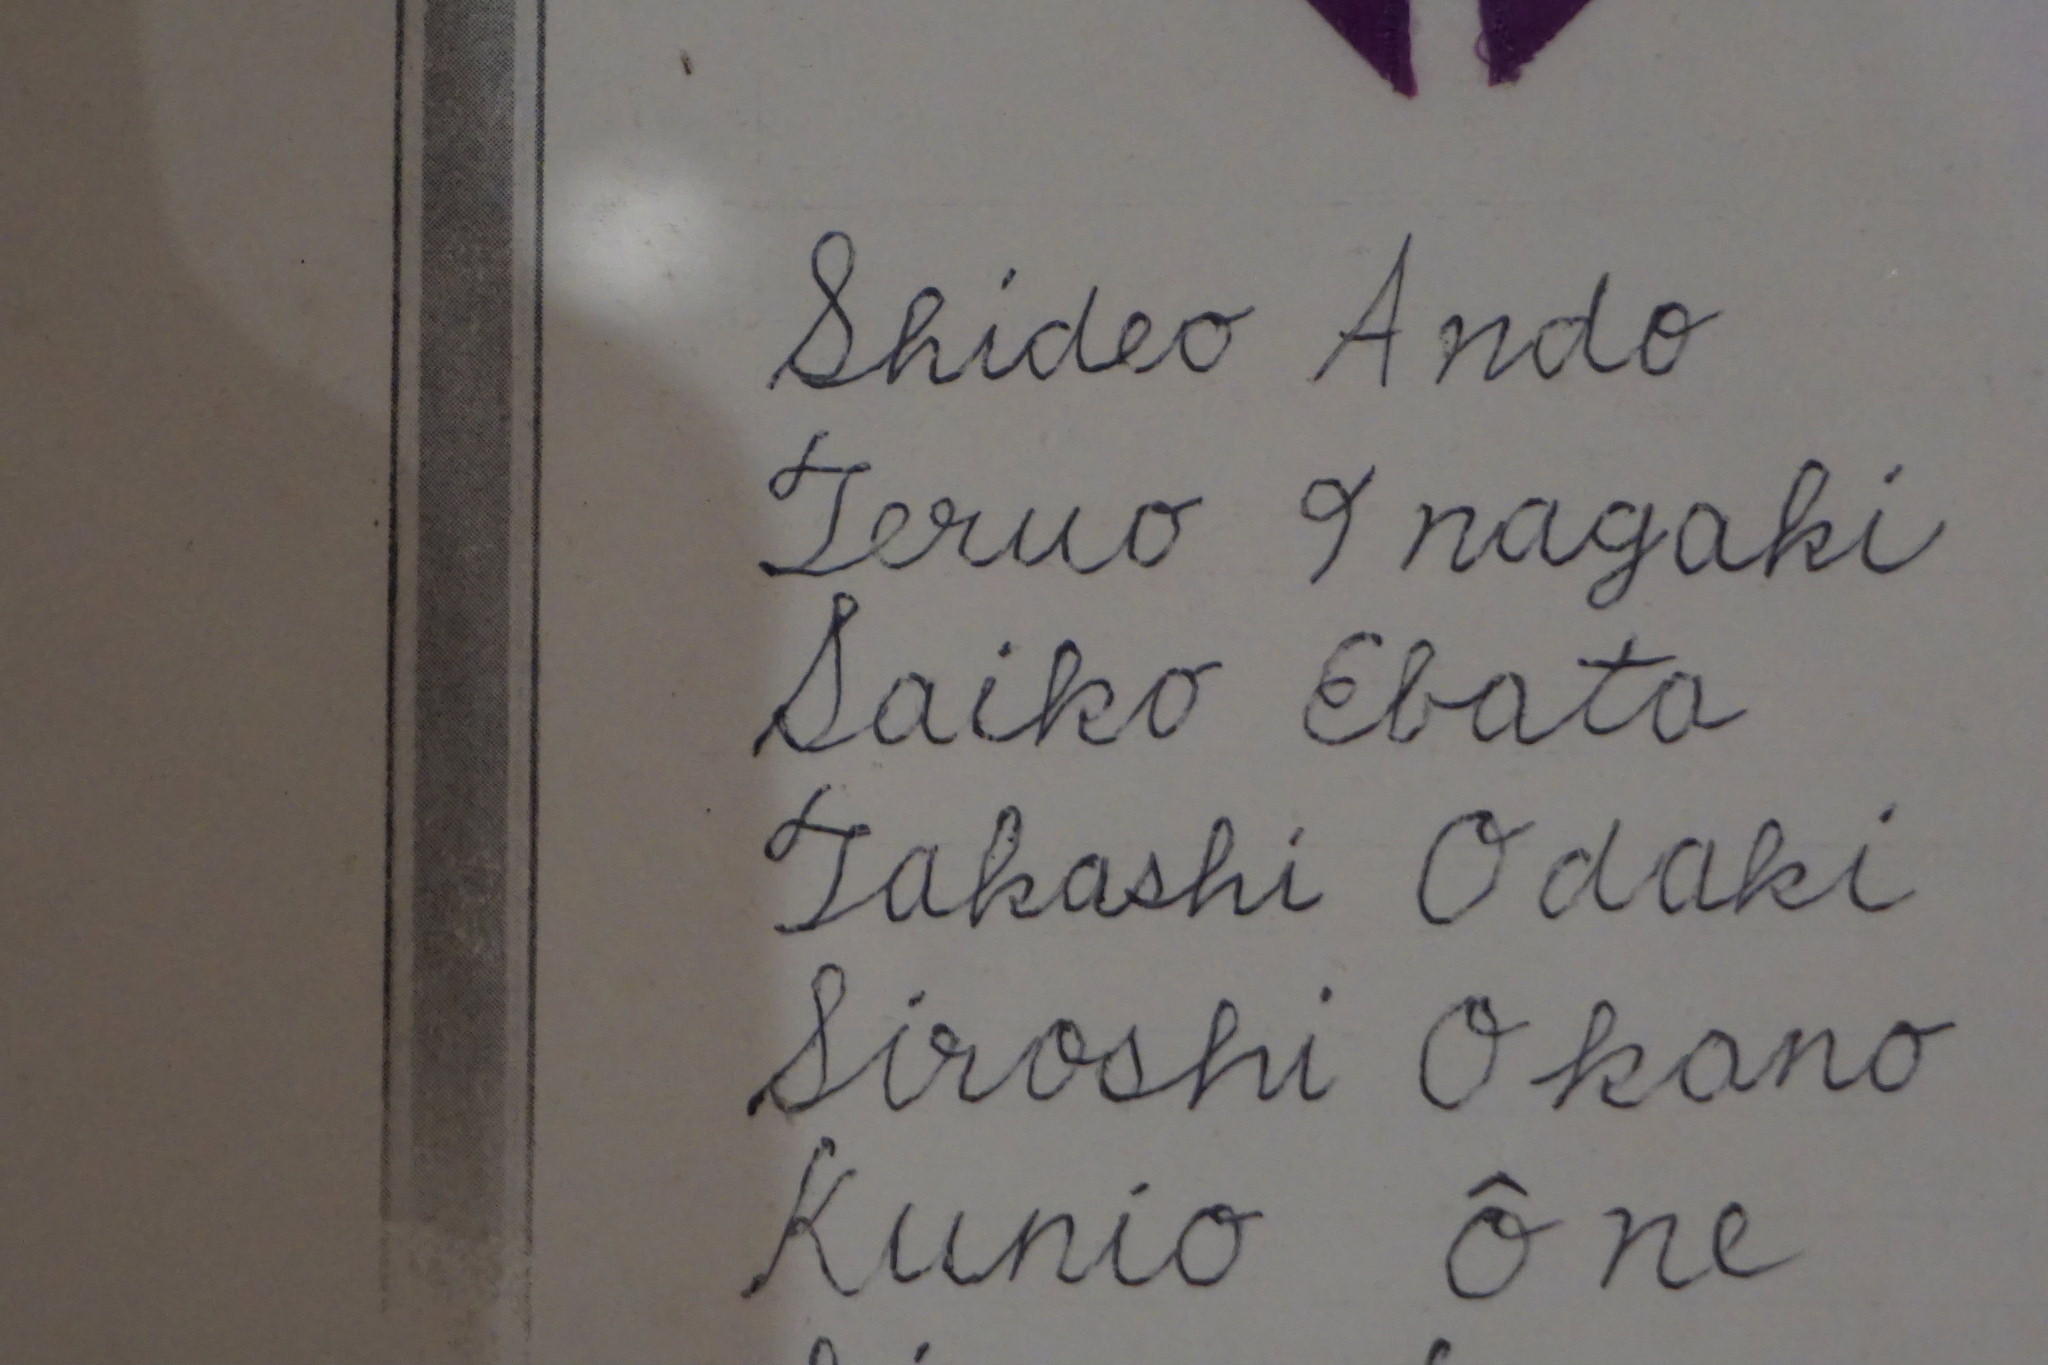 Shideo Ando
Teruo Inagaki
Saiko Ebata
Takashi Odaki
Siroshi Okano
Kunio Ône